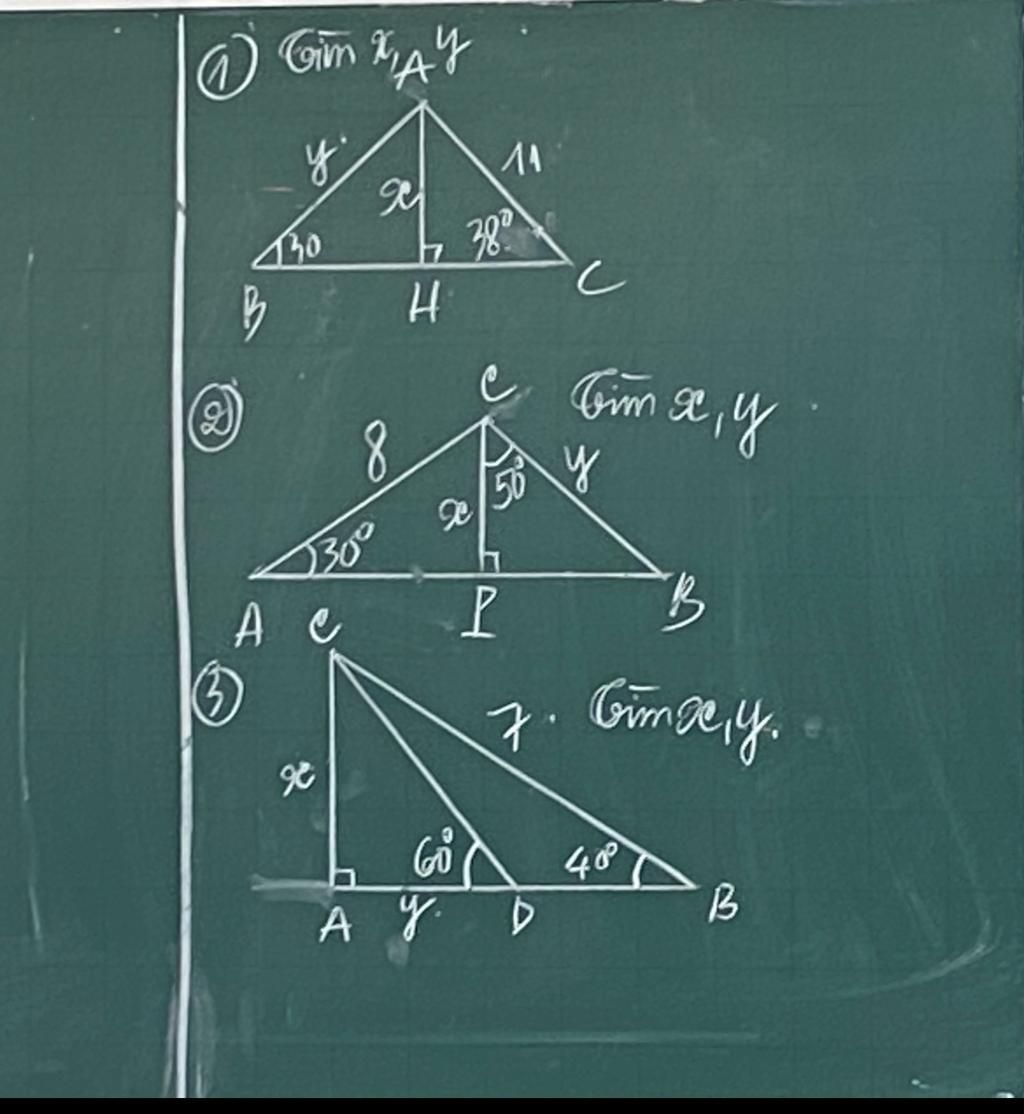 ① Tìm x, y
A
y
x
11
30
38°
B
H
C
② Tìm x, y
C
8
y
50°
x
30°
A
P
B
③ Tìm x, y.
C
7.
x
60°
40°
A
y.
D
B